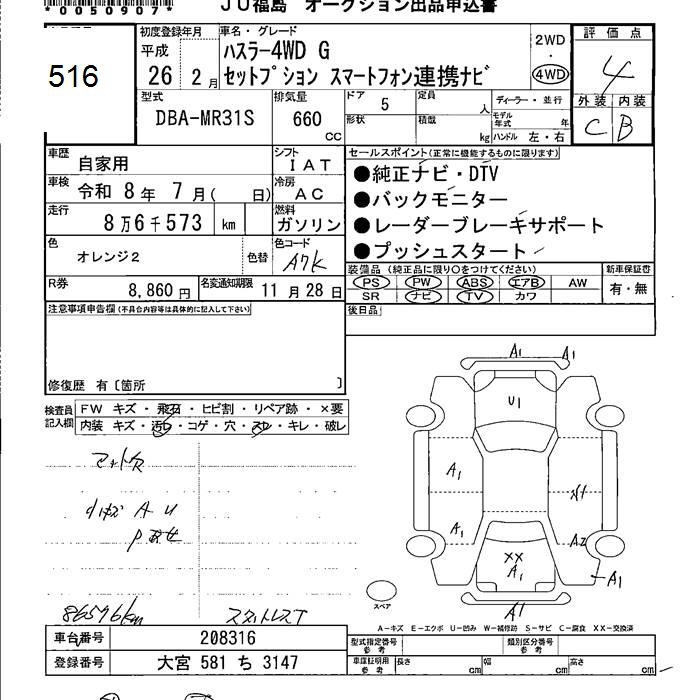 *0050907*
JU福島 オークション出品申込書
516
初度登録年月
平成
26 2月
車名・グレード
ハスラー4WD G
セットプション スマートフォン連携ナビ
2WD
・
4WD
評価点
4
外装 内装
C B
型式
DBA-MR31S
排気量
660
cc
ドア 5
形状
定員 人
積載 kg
ディーラー・並行
モデル年式 年
ハンドル 左・右
車歴 自家用
シフト IAT
車検 令和 8年 7月( 日)
冷房 AC
走行 8万6千573 km
燃料 ガソリン
色 オレンジ2 色替
色コード A7K
R券 8,860円
名変通知期限 11月28日
セールスポイント(正常に機能するものに限ります)
●純正ナビ・DTV
●バックモニター
●レーダーブレーキサポート
●プッシュスタート
装備品 (純正品に限り○をつけてください)
PS PW ABS エアB AW
SR ナビ TV カワ
新車保証書
有・無
後日品
注意事項申告欄(不具合内容等は具体的に記入して下さい)
修復歴 有〔箇所 〕
検査員記入欄
FW キズ・飛石・ヒビ割・リペア跡・×要
内装 キズ・汚れ・コゲ・穴・スレ・キレ・破レ
小キズ A U
86576km
スタットレスT
A1 A1
U1
A1
A1
A2
XX
A1
A1
A1
スペア
A-キズ E-エクボ U-凹み W-補修跡 S-サビ C-腐食 XX-交換済
車台番号 208316
登録番号 大宮 581 ち 3147
型式指定番号 参考
類別区分番号 参考
車庫証明用 参考
長さ cm 幅 cm 高さ cm